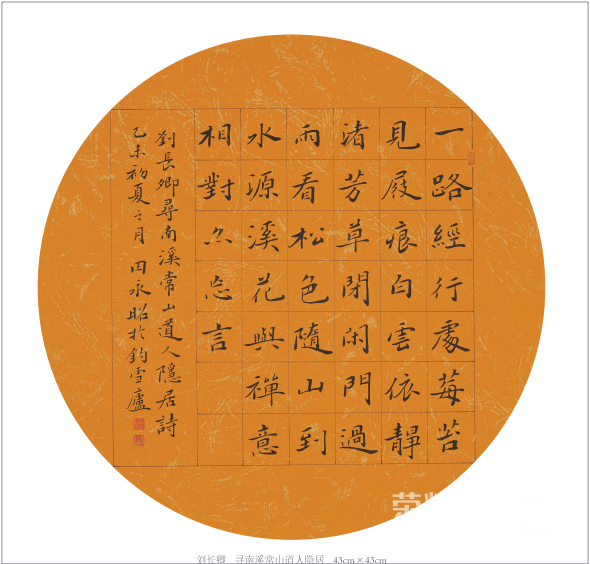 一路經行處莓苔
見屐痕白雲依靜
渚芳草閉闲門過
雨看松色隨山到
水源溪花與禪意
相對亦忘言
劉長卿尋南溪常山道人隱居詩
乙未初夏之月田永昭於釣雪廬
刘长卿 寻南溪常山道人隐居 43cm×43cm